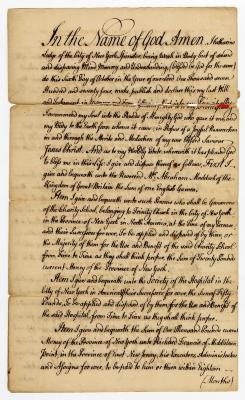 In the Name of God Amen, I Catharine
Lodge of the City of New York Spinster being weak in Body but of sound
and disposing Mind Memory and Understanding (blessed be God for the same)
do this Sixth Day of October in the Year of our Lord One thousand seven
Hundred and seventy four, make publish and declare this my last Will
and Testament in manner and form following that is to say Principally
I recommend my Soul into the Hands of Almighty God who gave it me and
my Body to the Earth from whence it came in Hopes of a Joyful Resurrection
in and through the Merits and Mediation of my ever blessed Saviour
Jesus Christ. And as to my Worldly Estate wherewith it has pleased God
to bless me in this life; I give and dispose thereof as follows. First, I
give and bequeath unto the Reverend Mr. Abraham of the
Kingdom of Great Britain the Sum of one English Guinea.
Item I give and bequeath unto such Persons who shall be Governors
of the Charity School belonging to Trinity Church in the City of New York
in the Province of New York in North America, at the time of my decease
and their Successors for ever, to be applied and disposed of by them, or
the Majority of them for the Use and Benefit of the said Charity School
from Time to Time as they shall think proper, the Sum of Twenty Pounds
current Money of the Province of New York.
Item I give and bequeath unto the Society of the Hospital in the
City of New York in America & their Successors for ever, the Sum of Fifty
Pounds, to be applied and disposed of by them for the Use and Benefit of
the said Hospital from Time to Time as they shall think proper.
Item I give and bequeath the Sum of One Thousand Pounds current
Money of the Province of New York unto Richard of
Point, in the Province of East New Jersey, his Executors, Administrators
and Assigns for ever, to be paid to him or them within Eighteen
(Months)